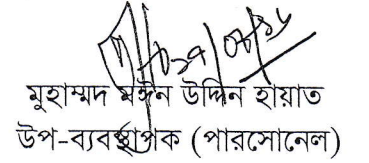 মুহাম্মদ মঈন উদ্দিন হায়াত
উপ-ব্যবস্থাপক (পারসোনেল)